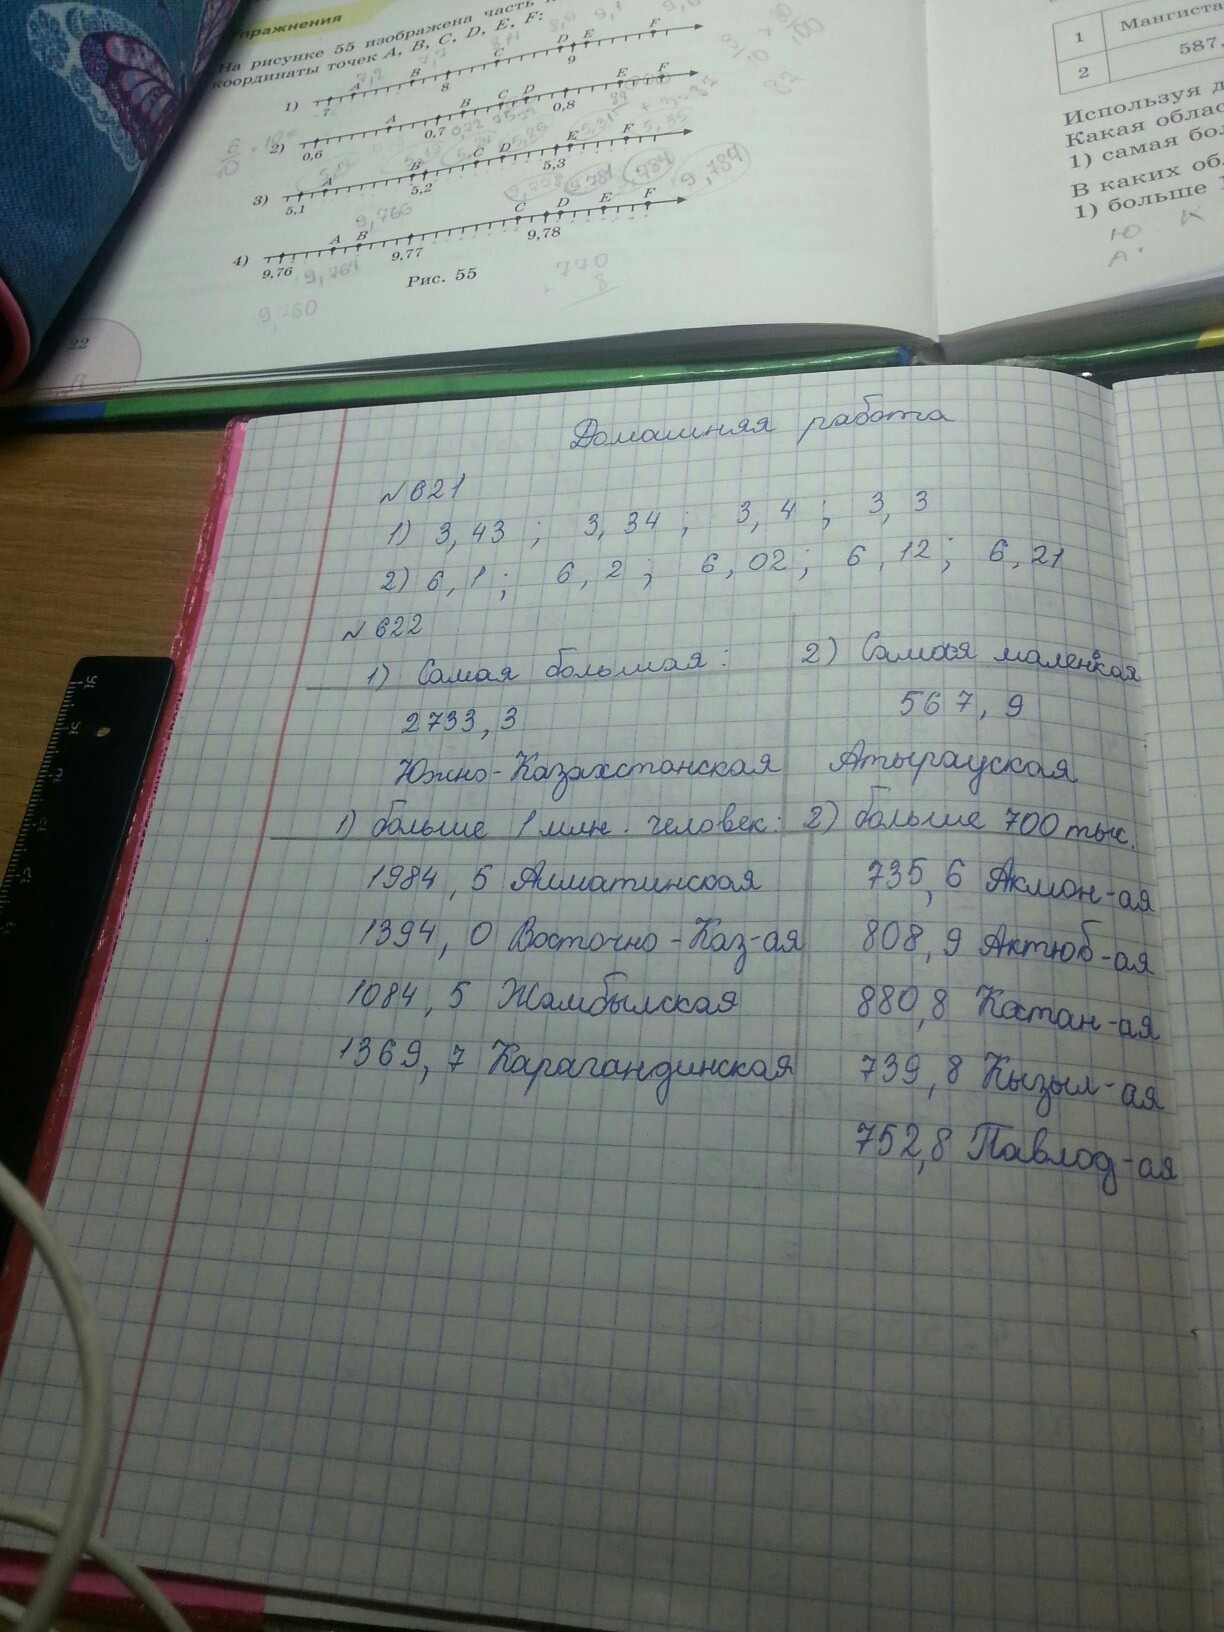 Упражнения
На рисунке 55 изображена часть
координаты точек A, B, C, D, E, F:
1) A B C D E F
7 8 9
2) A B C D E F
0,6 0,7 0,8
3) A B C D E F
5,1 5,2 5,3
4) A B C D E F
9,76 9,77 9,78
Рис. 55
22
1 Мангиста
2 587,
Используя д
Какая облас
1) самая бол
В каких об
1) больше 1
Домашняя работа
№621
1) 3,43 ; 3,34 ; 3,4 ; 3,3
2) 6,1 ; 6,2 ; 6,02 ; 6,12 ; 6,21
№622
1) Самая большая: 2) Самая маленькая
2733,3 567,9
Южно-Казахстанская Атырауская
1) больше 1 млн. человек: 2) больше 700 тыс.
1984,5 Алматинская 735,6 Акмон-ая
1394,0 Восточно-Каз-ая 808,9 Актюб-ая
1084,5 Жамбылская 880,8 Костан-ая
1369,7 Карагандинская 739,8 Кызыл-ая
752,8 Павлод-ая